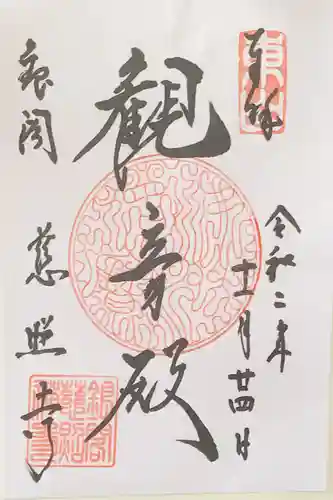 奉拝
令和二年
十二月廿四日
観音殿
銀閣
慈照寺